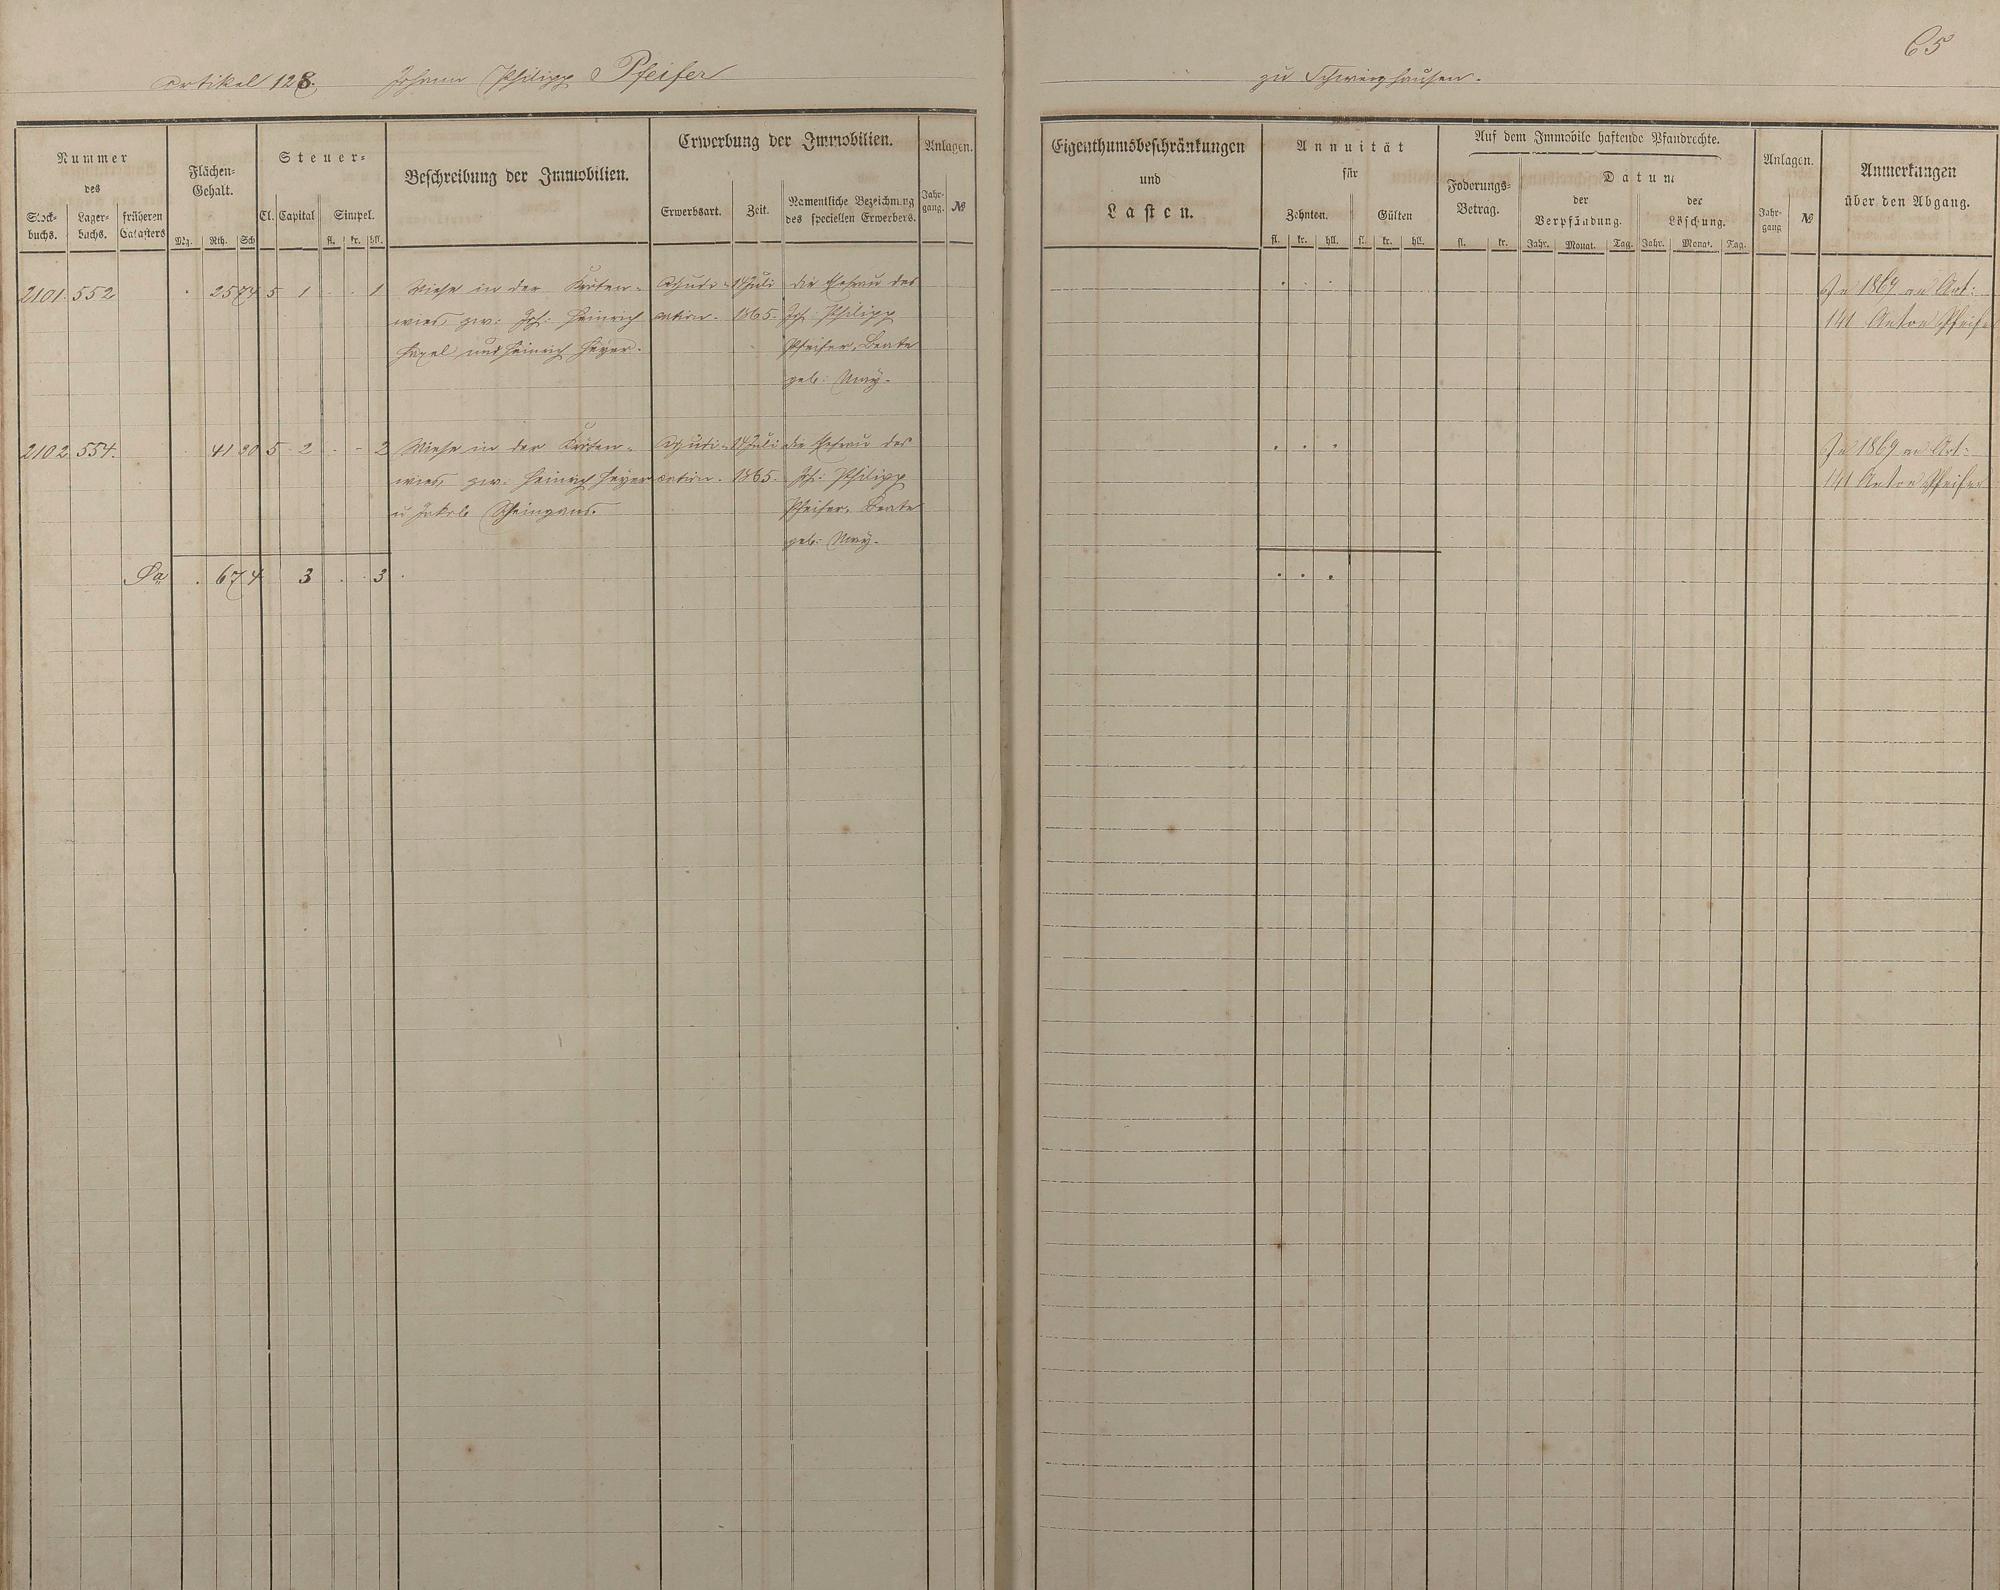 65
Artikel 128. Johann Philipp Pfeifer zu Schweighausen.
Nummer
des
Stock-
buchs.
Lager-
buchs.
früheren
Catasters
Flächen-
Gehalt.
Mg. Rth. Sch
Steuer-
Cl. Capital Simpel.
fl. kr. hll.
Beschreibung der Immobilien.
Erwerbung der Immobilien.
Erwerbsart. Zeit.
Namentliche Bezeichnung
des speciellen Erwerbers.
Anlagen.
Jahr-
gang. №
Eigenthumsbeschränkungen
und
Lasten.
Annuität
für
Zehnten. Gülten
fl. kr. hll. fl. kr. hll.
Auf dem Immobile haftende Pfandrechte.
Foderungs-
Betrag.
fl. kr.
Datum
der
Verpfändung.
der
Löschung.
Jahr. Monat. Tag. Jahr. Monat. Tag.
Anlagen.
Jahr-
gang №
Anmerkungen
über den Abgang.
2101. 552 . 25 74 5 1 . . 1 Wiese in der Kröten- Adjudi- 14 Juli die Ehefrau des
wies, zw: Joh: Heinrich cation. 1865. Joh: Philipp
und Heinrich Heyer. Pfeifer, Beate
geb: May.
In 1869 an Art:
141 Anton Pfeifer
2102 554. 41 30 5 2 . - 2 Wiese in der Kröten- Adjudi- 14 Juli die Ehefrau des
wies, zw: Heinrich Heyer cation. 1865. Joh: Philipp
u Jakob Pfeifer, Beate
geb: May.
In 1869 an Art:
141 Anton Pfeifer
Sa . 67 4 3 . . 3 .